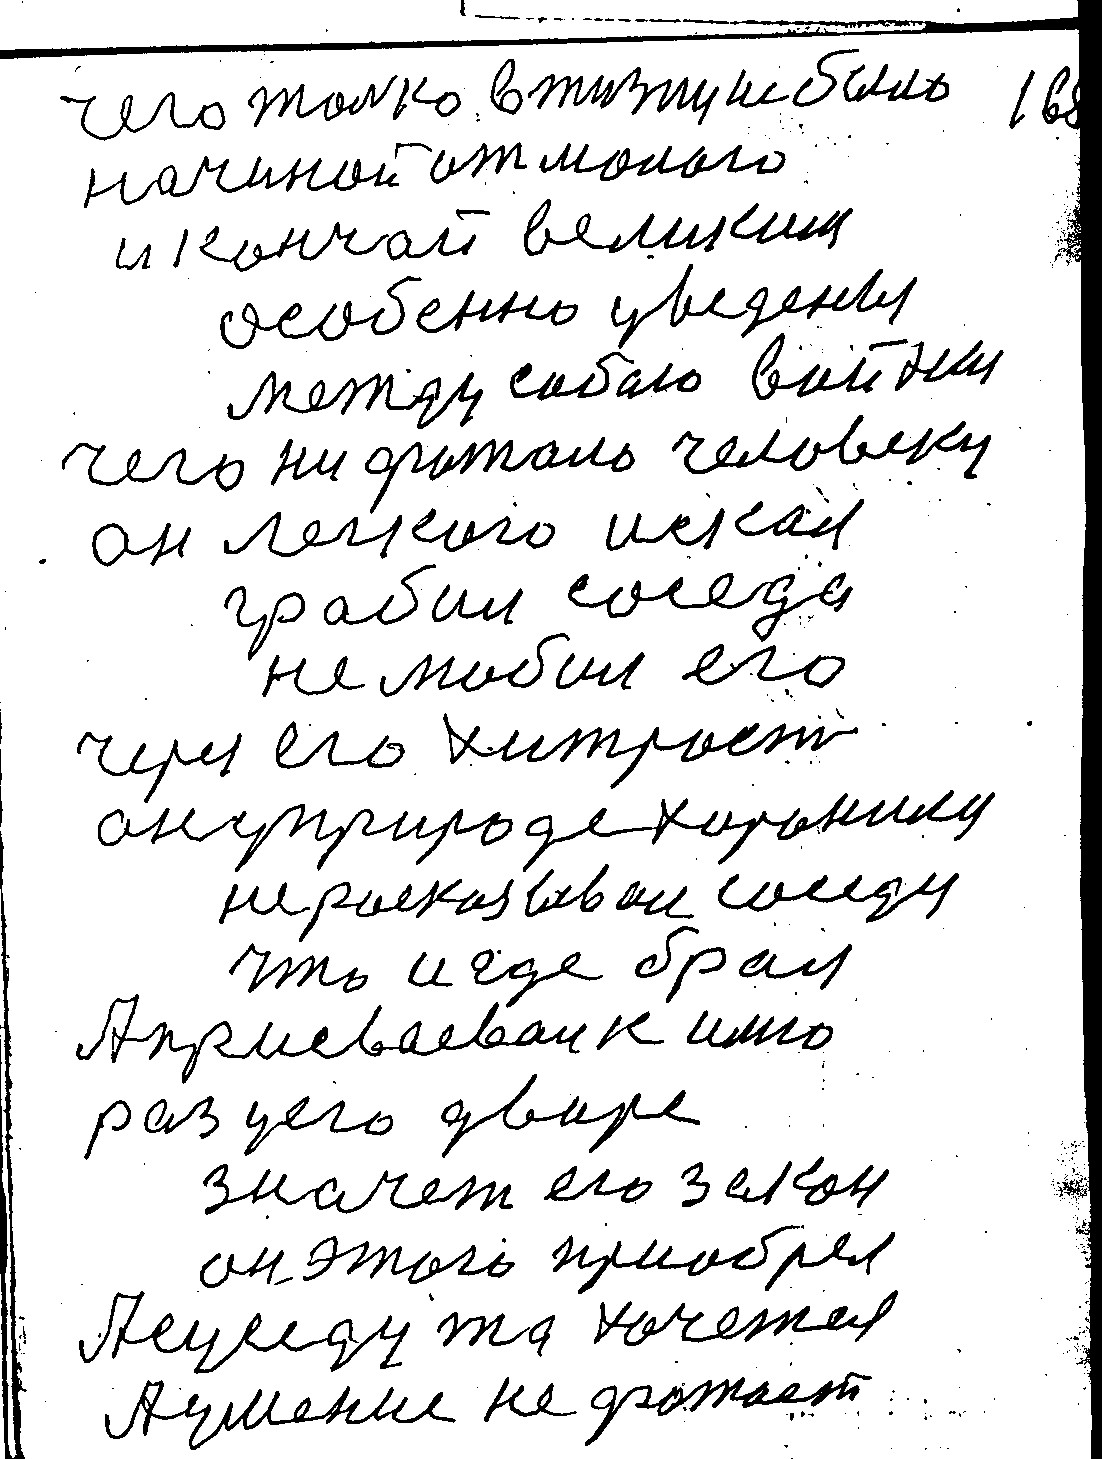 чего толко в жизни не было 168
начиной от малого
и кончай великим
особенно уведении
между собаю войнии
чего ни фатало человеку
он легкого искал
грабил соседа
не любил его
через его хитрост
он у природе хоронили
не расказывал соседу
что и где брал
А присваевал к имю
раз у его дваре
значет его закон
он этого приобрел
А суседу та хочется
А умение не фатает